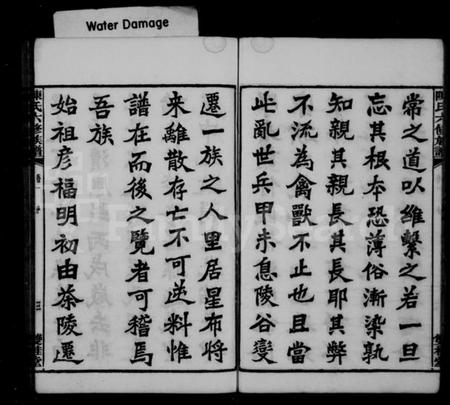 Water Damage
常之道以維繫之若一旦
忘其根本恐薄俗漸染孰
知親其親長其長耶其弊
不流為禽獸不止也且當
此亂世兵甲未息陵谷變
遷一族之人里居星布將
來離散存亡不可逆料惟
譜在而後之覽者可稽焉
吾族
始祖彦福明初由茶陵遷
陳氏六修族譜
三